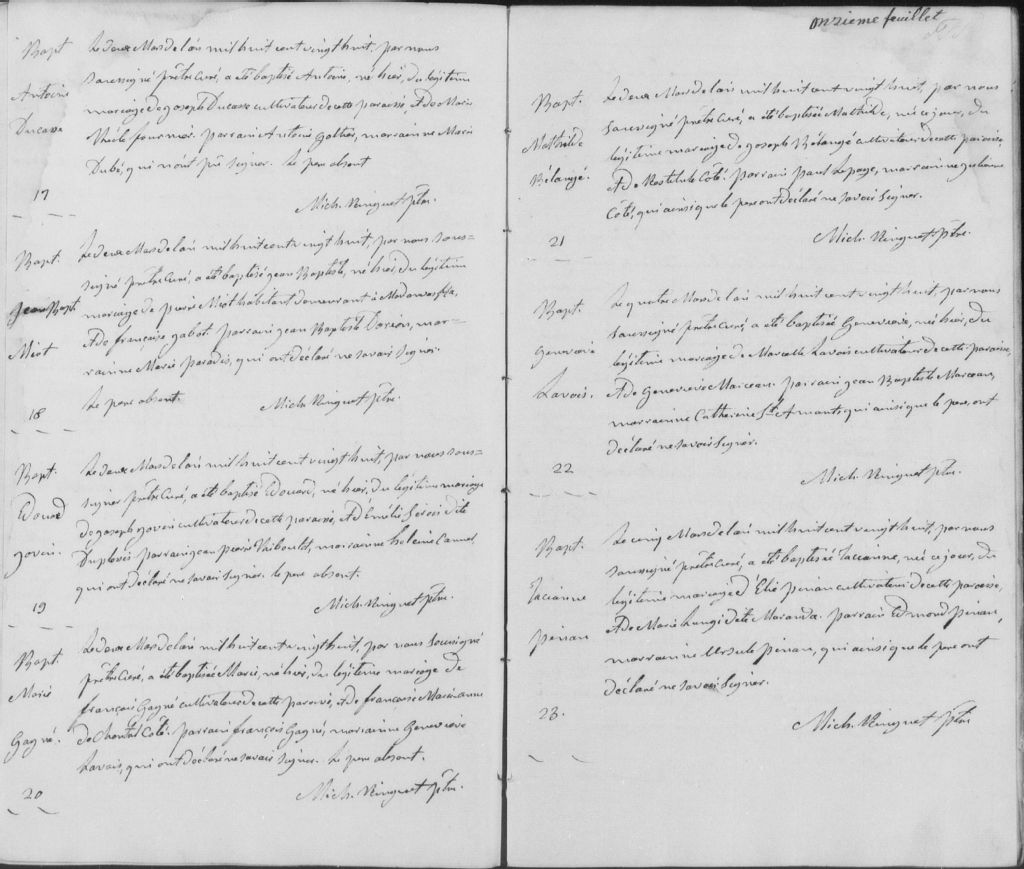 Bapt
Antoine
Ducasse
17
Le deux Mars de l'an mil huit cent vingt huit, par nous
soussigné prêtre Curé, a été baptisé Antoine, né hier, du légitime
mariage de joseph Ducasse cultivateur de cette paroisse, & de Marie
parrain Antoine marrainne Marie
Dubé, qui n'ont pû signer. Le pere absent
Mich. Ringuet ptre.
Bapt.
Jean Bapt.
Miot
18
Le deux Mars de l'an mil huit cent vingt huit, par nous sous=
signé prêtre Curé, a été baptisé jean Baptiste, né hier, du légitime
mariage de pierre Miot habitant demeurant à Madawaska,
& de francoise gabot. parrain jean Baptiste Dorion, mar=
rainne Marie paradis, qui ont déclaré ne savoir signer.
Le pere absent.
Mich. Ringuet ptre.
Bapt.
Edouard
govin.
19
Le deux Mars de l'an mil huit cent vingt huit, par nous sous=
signer prêtre Curé, a été baptisé Edouard, né hier, du légitime mariage
de joseph govin cultivateur de cette paroisse, & d'Emélie Serois dite
Duplessis. parrain jean pierre Thiboult, marrainne helenne Cannel
qui ont déclaré ne savoir signer. le pere absent.
Mich. Ringuet ptre.
Bapt.
Marie
Gagné.
20
Le deux Mars de l'an mil huit cent vingt huit, par nous soussigné
prêtre Curé, a été baptisée Marie, né hier, du légitime mariage de
françois Gagné cultivateur de cette paroisse, & de francoise Marianne
de Chantal Coté. parrain françois Gagné, marrainne Genevieve
Lavois, qui ont déclaré ne savoir signer. Le pere absent.
Mich. Ringuet ptre.
onzieme feuillet
Bapt.
Mathilde
Bélangé.
21
Le deux Mars de l'an mil huit cent vingt huit, par nous
soussigné prêtre Curé, a été baptisée Mathilde, née ce jour, du
légitime mariage de joseph Bélangé cultivateur de cette paroisse,
& de Restitule Coté. parrain paul Lepage, marrainne julienne
Coté, qui ainsi que le pere ont déclaré ne savoir signer.
Mich. Ringuet ptre.
Bapt.
Genevieve
Lavois.
22
Le quatre Mars de l'an mil huit cent vingt huit, par nous
soussigné prêtre Curé a été baptisée Genevieve, née hier, du
légitime mariage de Marcelle Lavois cultivateur de cette paroisse,
& de Genevieve Marceau. parrain jean Baptiste Marceau,
marrainne Catherine St. Amant, qui ainsi que le pere, ont
déclaré ne savoir signer.
Mich. Ringuet ptre.
Bapt.
pinan
23.
Le cinq Mars de l'an mil huit cent vingt huit, par nous
soussigné prêtre Curé, a été baptisée née ce jour, du
légitime mariage d'Elie pinan cultivateur de cette paroisse,
& de Marie dite Maranda. parrain Edmond pinan,
marrainne Ursule pinan, qui ainsi que le pere ont
déclaré ne savoir signer.
Mich. Ringuet ptre